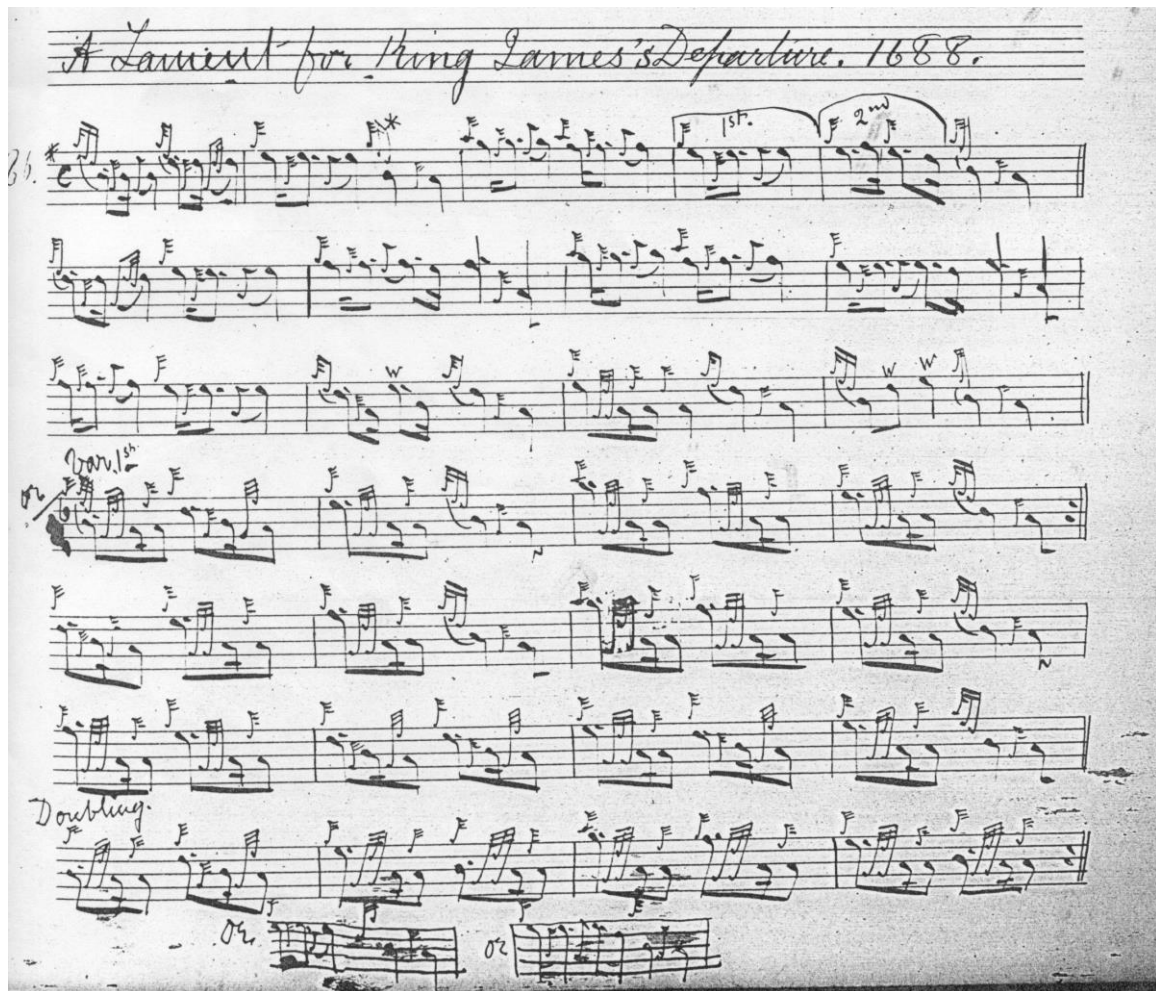 A Lament for King James's Departure. 1688.
1st. 2nd
Var. 1st
or
Doubling.
Or,
or